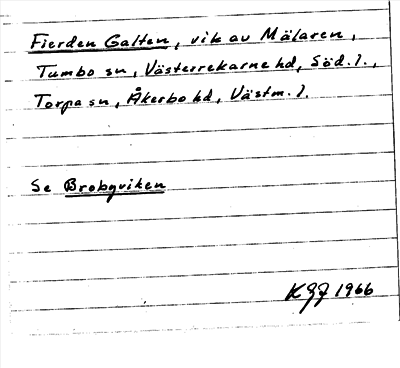 Fierden Galten, vik av Mälaren,
Tumbo sn, Västerrekarne hd, Söd. l.,
Torpa sn, Åkerbo hd, Västm. l.
Se Brobyviken
1966